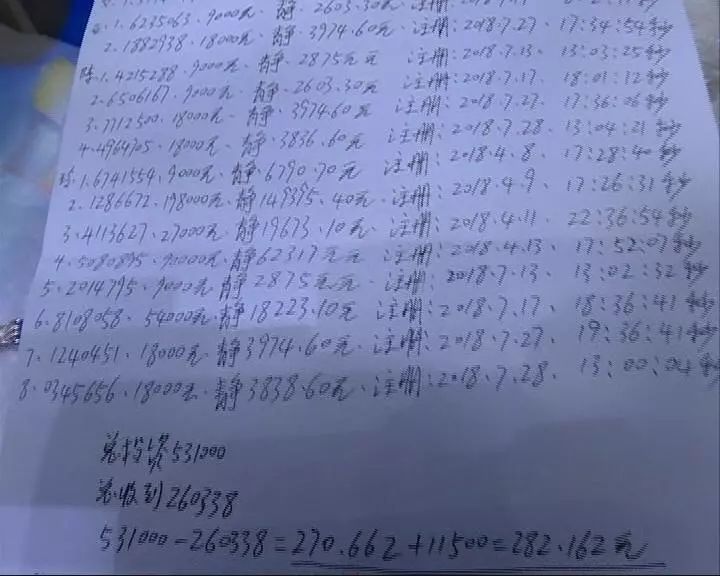 1.6235063.9000元.静.2603.30元
2.1882938.18000元.静.3974.60元 注册:2018.7.27. 17:34:54秒
陈.1.4215288.9000元.静.2875元 注册:2018.7.13. 13:03:25秒
2.6506167.9000元.静.2603.30元 注册:2018.7.17. 18:01:12秒
3.7712500.18000元.静.3974.60元 注册:2018.7.27. 17:36:06秒
4.4964705.18000元.静.3836.60元 注册:2018.7.28. 13:04:21秒
1.6741554.9000元.静.6790.70元 注册:2018.4.8. 17:28:40秒
2.1286672.198000元.静149395.40元.注册:2018.4.9. 17:26:31秒
3.4113627.27000元.静19673.10元.注册:2018.4.11. 22:36:54秒
4.5080895.90000元.静62317元.注册:2018.4.13. 17:52:07秒
5.2014795.9000元.静2875元元.注册:2018.7.13. 13:02:32秒
6.8108058.54000元.静18223.10元.注册:2018.7.17. 18:36:41秒
7.1240451.18000元.静3974.60元.注册:2018.7.27. 19:36:41秒
8.0345656.18000元.静3838.60元.注册:2018.7.28. 13:00:04秒
总投资531000
总收到260338
531000-260338=270.662+11500=282.162元